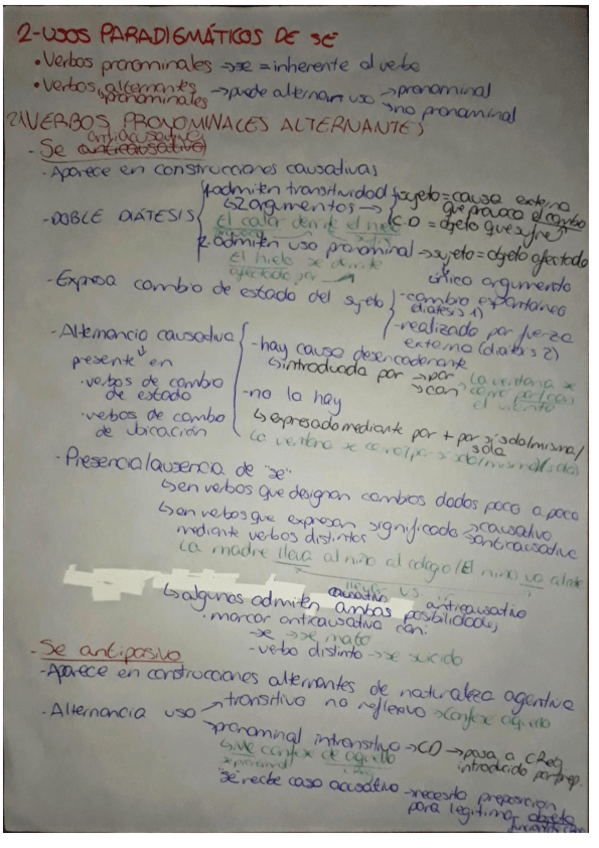 2-USOS PARADIGMÁTICOS DE SE
• Verbos pronominales → se = inherente al verbo
• Verbos alternantes pronominales → puede alternar uso → pronominal
→ no pronominal
2.1 VERBOS PRONOMINALES ALTERNANTES
- Se anticausativo
· Aparece en construcciones causativas
- DOBLE DIÁTESIS
1. admiten transitividad → sujeto = causa externa que provoca el cambio
↳ 2 argumentos → C.D = objeto que sufre
El calor derrite el hielo
2. admiten uso pronominal → sujeto = objeto afectado
El hielo se derrite
afectado por
único argumento
- Expresa cambio de estado del sujeto
- cambio espontáneo
(diátesis 1)
- realizado por fuerza
externa (diátesis 2)
- Alternancia causativa
↓
presente en
· verbos de cambio
de estado
· verbos de cambio
de ubicación
- hay causa desencadenante
↳ introducida por → por
→ con
La ventana se
el viento
- no la hay
↳ expresado mediante por + por sí sola/misma/
sola
La ventana se
- Presencia/ausencia de "se"
↳ en verbos que designan cambios dados poco a poco
↳ en verbos que expresan significado → causativo
mediante verbos distintos → anticausativo
La madre lleva al niño al colegio/El niño va al cole
lleva vs
↳ algunos admiten ambas posibilidades
causativo anticausativo
· marcar anticausativo con:
- se → se mató
- verbo distinto → se suicidó
- Se antipasivo
- Aparece en construcciones alternantes de naturaleza agentiva
- Alternancia uso → transitivo no reflexivo → Confesé aquello
→ pronominal intransitivo → CD → pasa a CReg
introducido por prep.
↳ Me confesé de aquello
"se" recibe caso acusativo → necesita preposición
para legitimar objeto